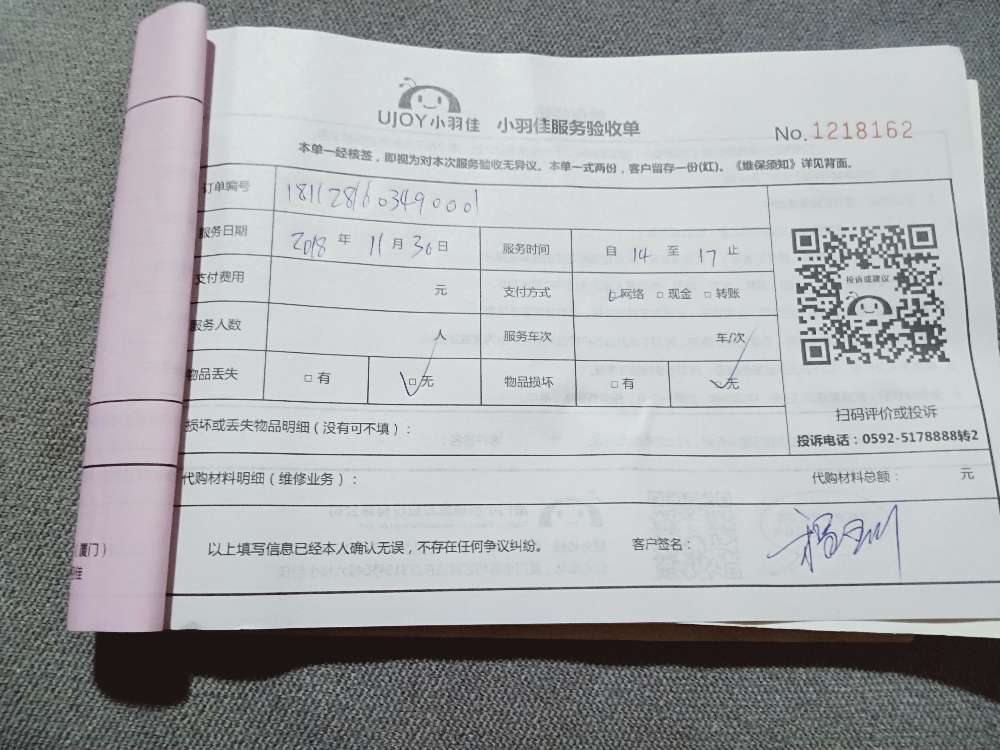 UJOY小羽佳 小羽佳服务验收单
No.1218162
本单一经核签，即视为对本次服务验收无异议。本单一式两份，客户留存一份(红)。《维保须知》详见背面。
订单编号 1811281603490001
服务日期 2018 年 11 月 30 日 服务时间 自 14 至 17 止
支付费用 元 支付方式 □网络 □现金 □转账
服务人数 人 服务车次 车/次
物品丢失 □有 □无 物品损坏 □有 □无
投诉或建议
扫码评价或投诉
投诉电话：0592-5178888转2
损坏或丢失物品明细（没有可不填）：
代购材料明细（维修业务）： 代购材料总额： 元
以上填写信息已经本人确认无误，不存在任何争议纠纷。 客户签名：
厦门）
佳